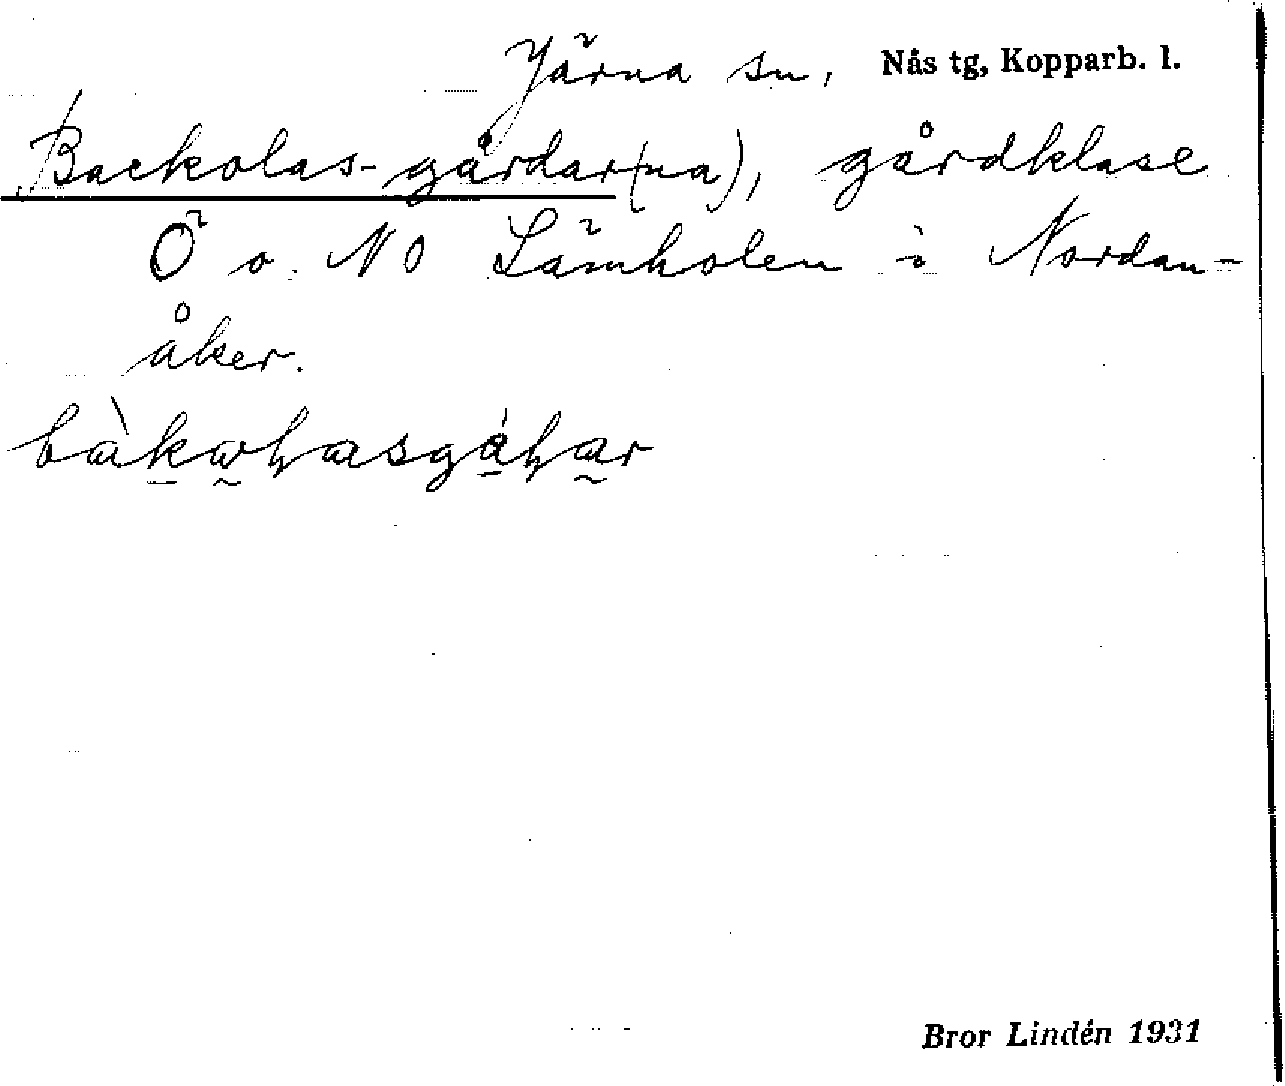 Järna sn, Nås tg, Kopparb. l.
Backolas-gårdar(na), gårdklase
Ö o. NO Lämholen i Nordan-
åker.
Bror Lindén 1931